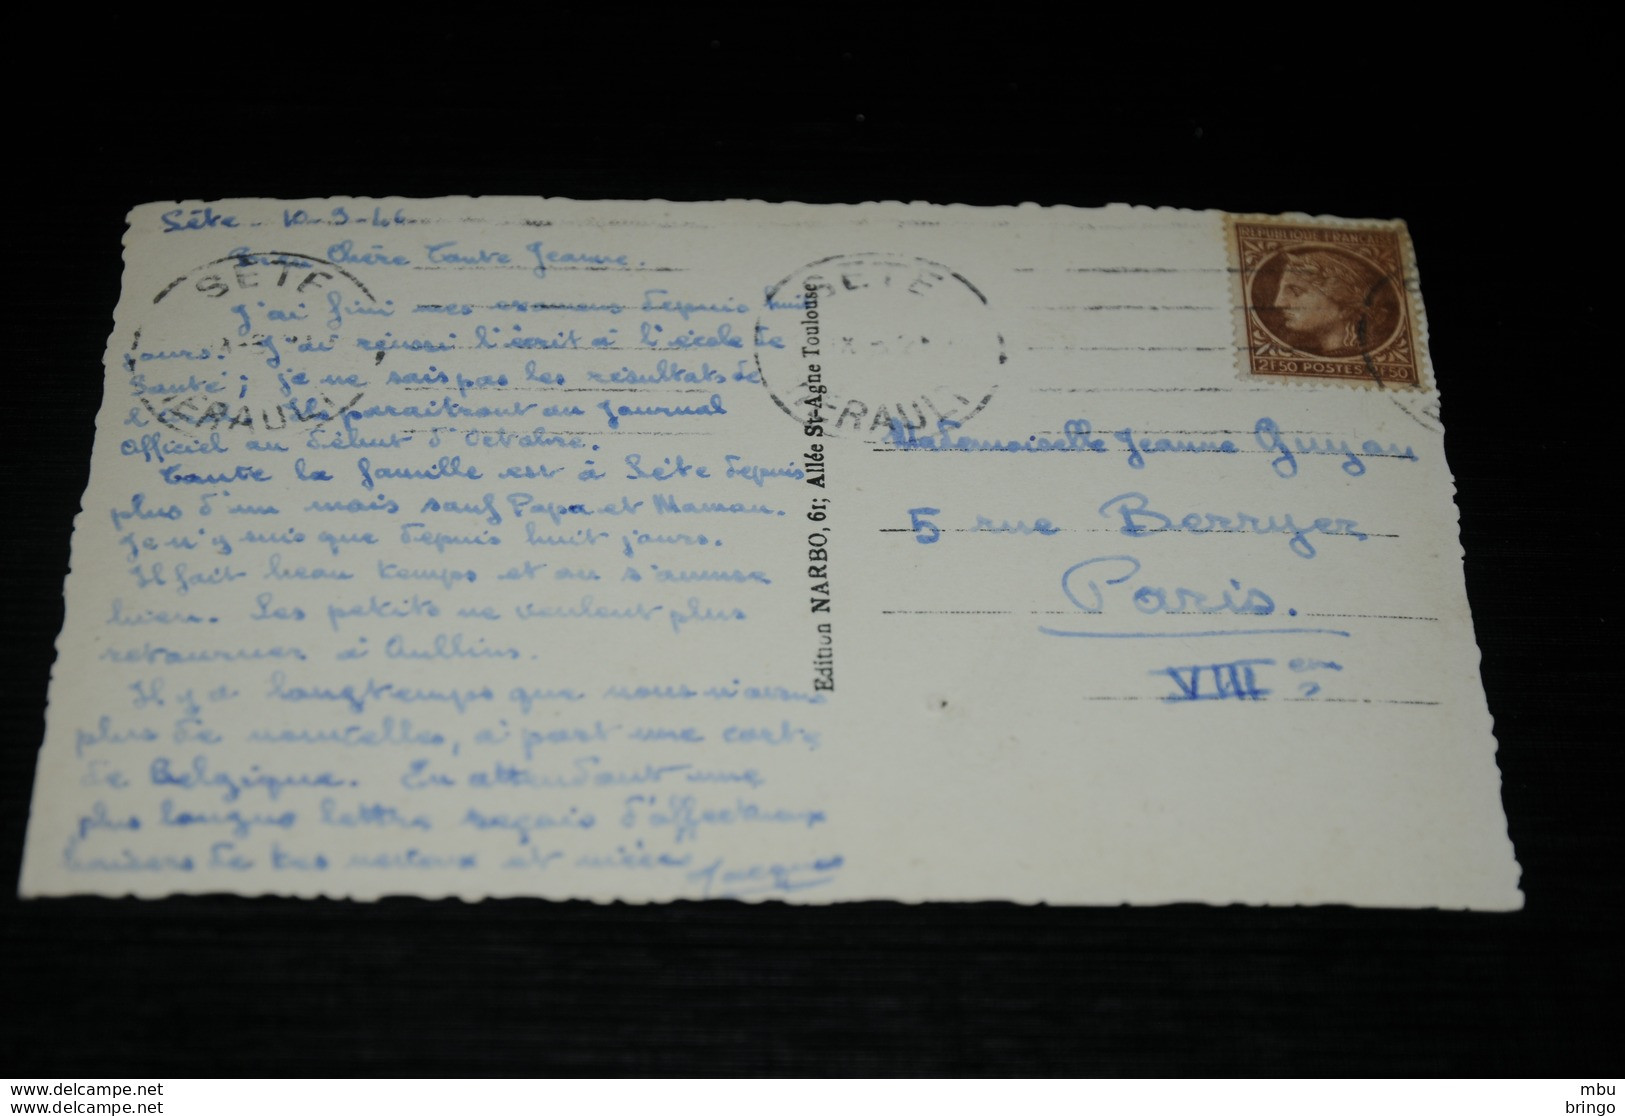 Sète 10-9-46
Bien Chère Tante Jeanne.
J'ai fini mes examens depuis huit
jours. J'ai réussi l'écrit à l'école de
Santé ; je ne sais pas les résultats de
Ils paraîtront au Journal
Officiel au début d'Octobre.
Toute la famille est à Sète depuis
plus d'un mois sauf Papa et Maman.
Je n'y suis que depuis huit jours.
Il fait beau temps et on s'amuse
bien. Les petits ne veulent plus
retourner à Oullins.
Il y a longtemps que nous n'avons
plus de nouvelles, à part une carte
de Belgique. En attendant une
plus longue lettre reçois d'affectueux
baisers de tes neveux et nièce Jacques
SÈTE
HÉRAULT
SÈTE
HÉRAULT
Edition NARBO, 61; Allée St-Agne Toulouse
REPUBLIQUE FRANÇAISE
2F50 POSTES 2F50
Mademoiselle Jeanne Guyau
5 rue Berryer
Paris.
VIII em
mbu
bringo
delcampe.net